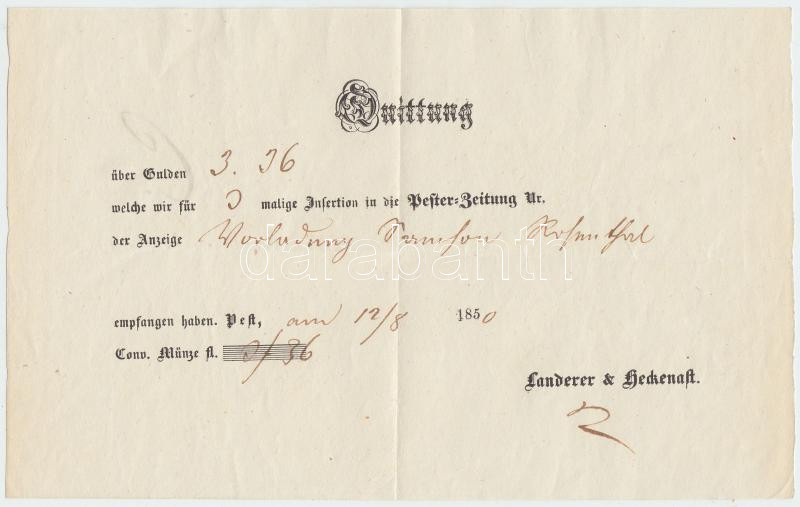 Quittung
über Gulden 3. 36
welche wir für 3 malige Insertion in die Pester-Zeitung Nr.
der Anzeige Vorladung Samson Rosenthal
darabanth
empfangen haben. Pest, am 12/8 1850
Conv. Münze fl. 3/36
Landerer & Heckenast.